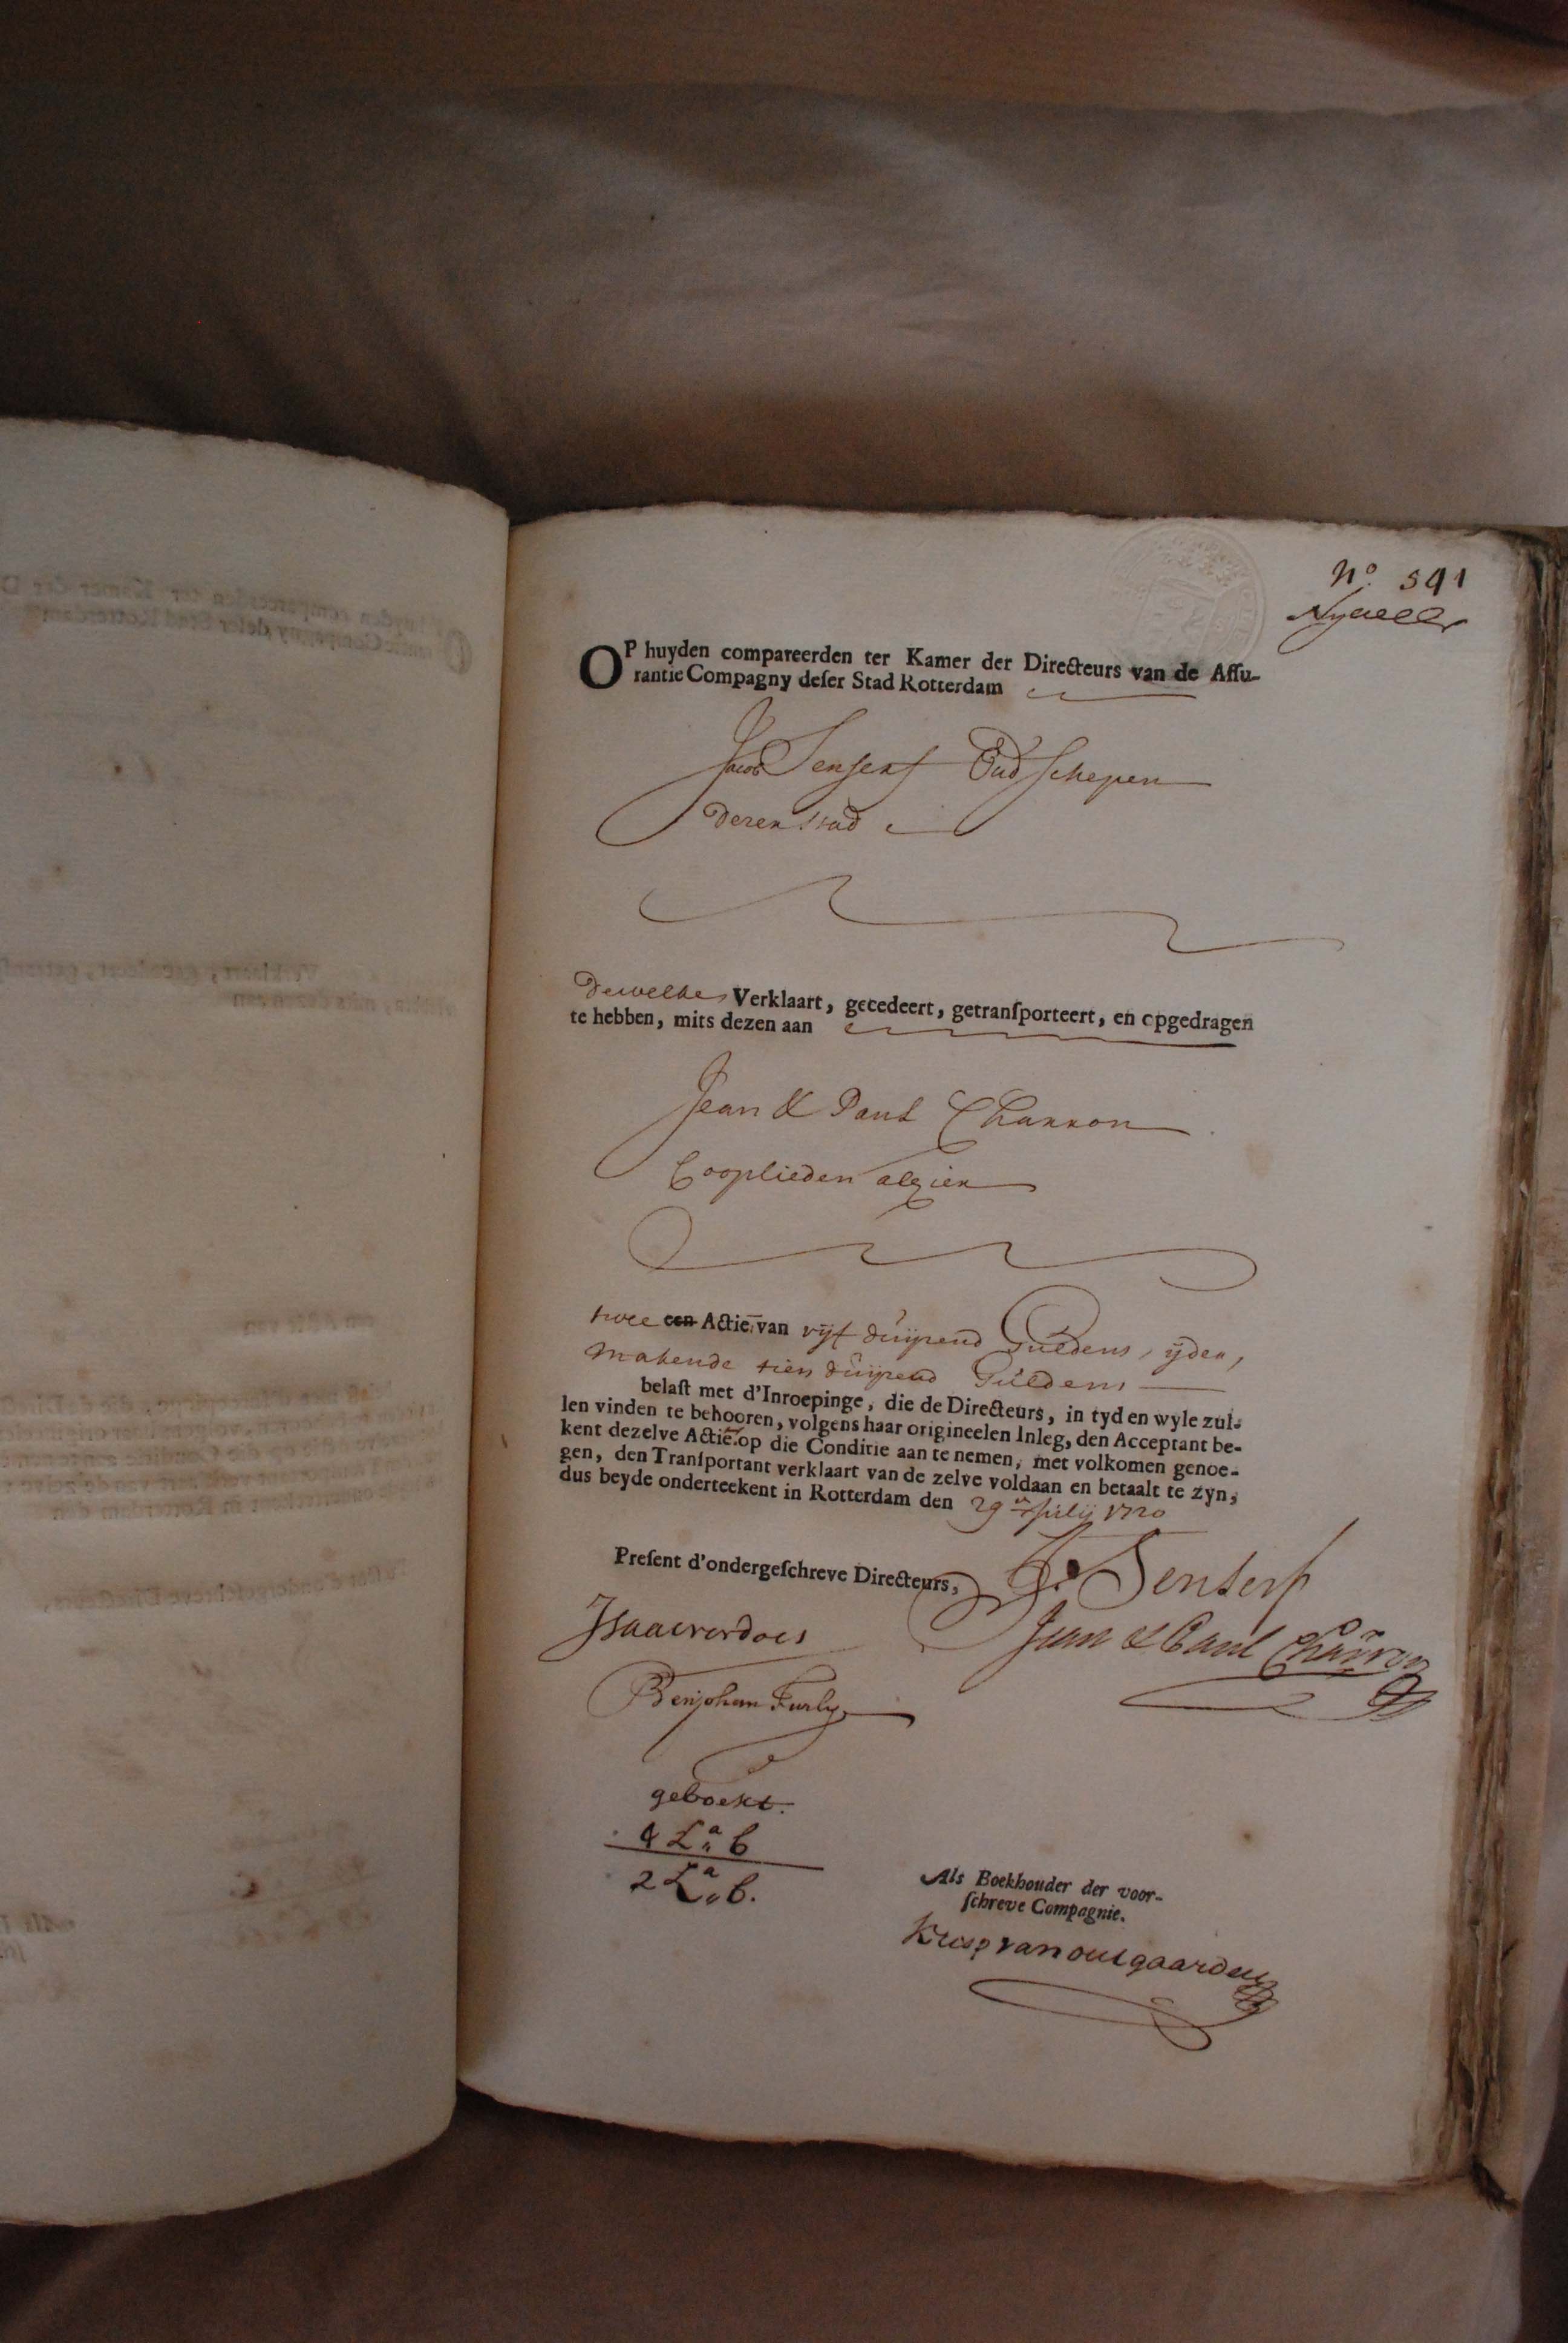 N.º 541
OP huyden compareerden ter Kamer der Directeurs van de Aſſu-
rantie Compagny deſer Stad Rotterdam
Jacob Senserf Oud Schepen
dezer Stad
dewelke Verklaart, gecedeert, getranſporteert, en opgedragen
te hebben, mits dezen aan
Jean & Paul Charron
Cooplieden alhier
twee een Actie, van vijf duijzend Guldens, ijder,
makende tien duijzend Guldens
belaſt met d'Inroepinge, die de Directeurs, in tyd en wyle zul-
len vinden te behooren, volgens haar origineelen Inleg, den Acceptant be-
kent dezelve Actie op die Conditie aan te nemen, met volkomen genoe-
gen, den Tranſportant verklaart van de zelve voldaan en betaalt te zyn,
dus beyde onderteekent in Rotterdam den 29en Julij 1720
Preſent d'ondergeſchreve Directeurs,
J. Senserf
Isaac verdoes
Jean & Paul Charron
Benjohan Furly
geboekt.
4 La b
2 La b.
Als Boekhouder der voor-
ſchreve Compagnie.
van outgaarden